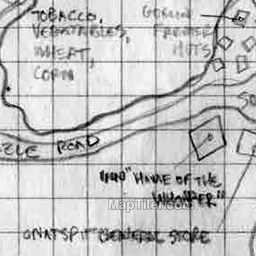 TOBACCO,
VEGETABLES,
WHEAT,
CORN
GOBLIN
FARMER
HUTS
ZLE ROAD
SO
INN "HOME OF THE
WHOPPER"
MapTiler.com
GNATSPIT GENERAL STORE